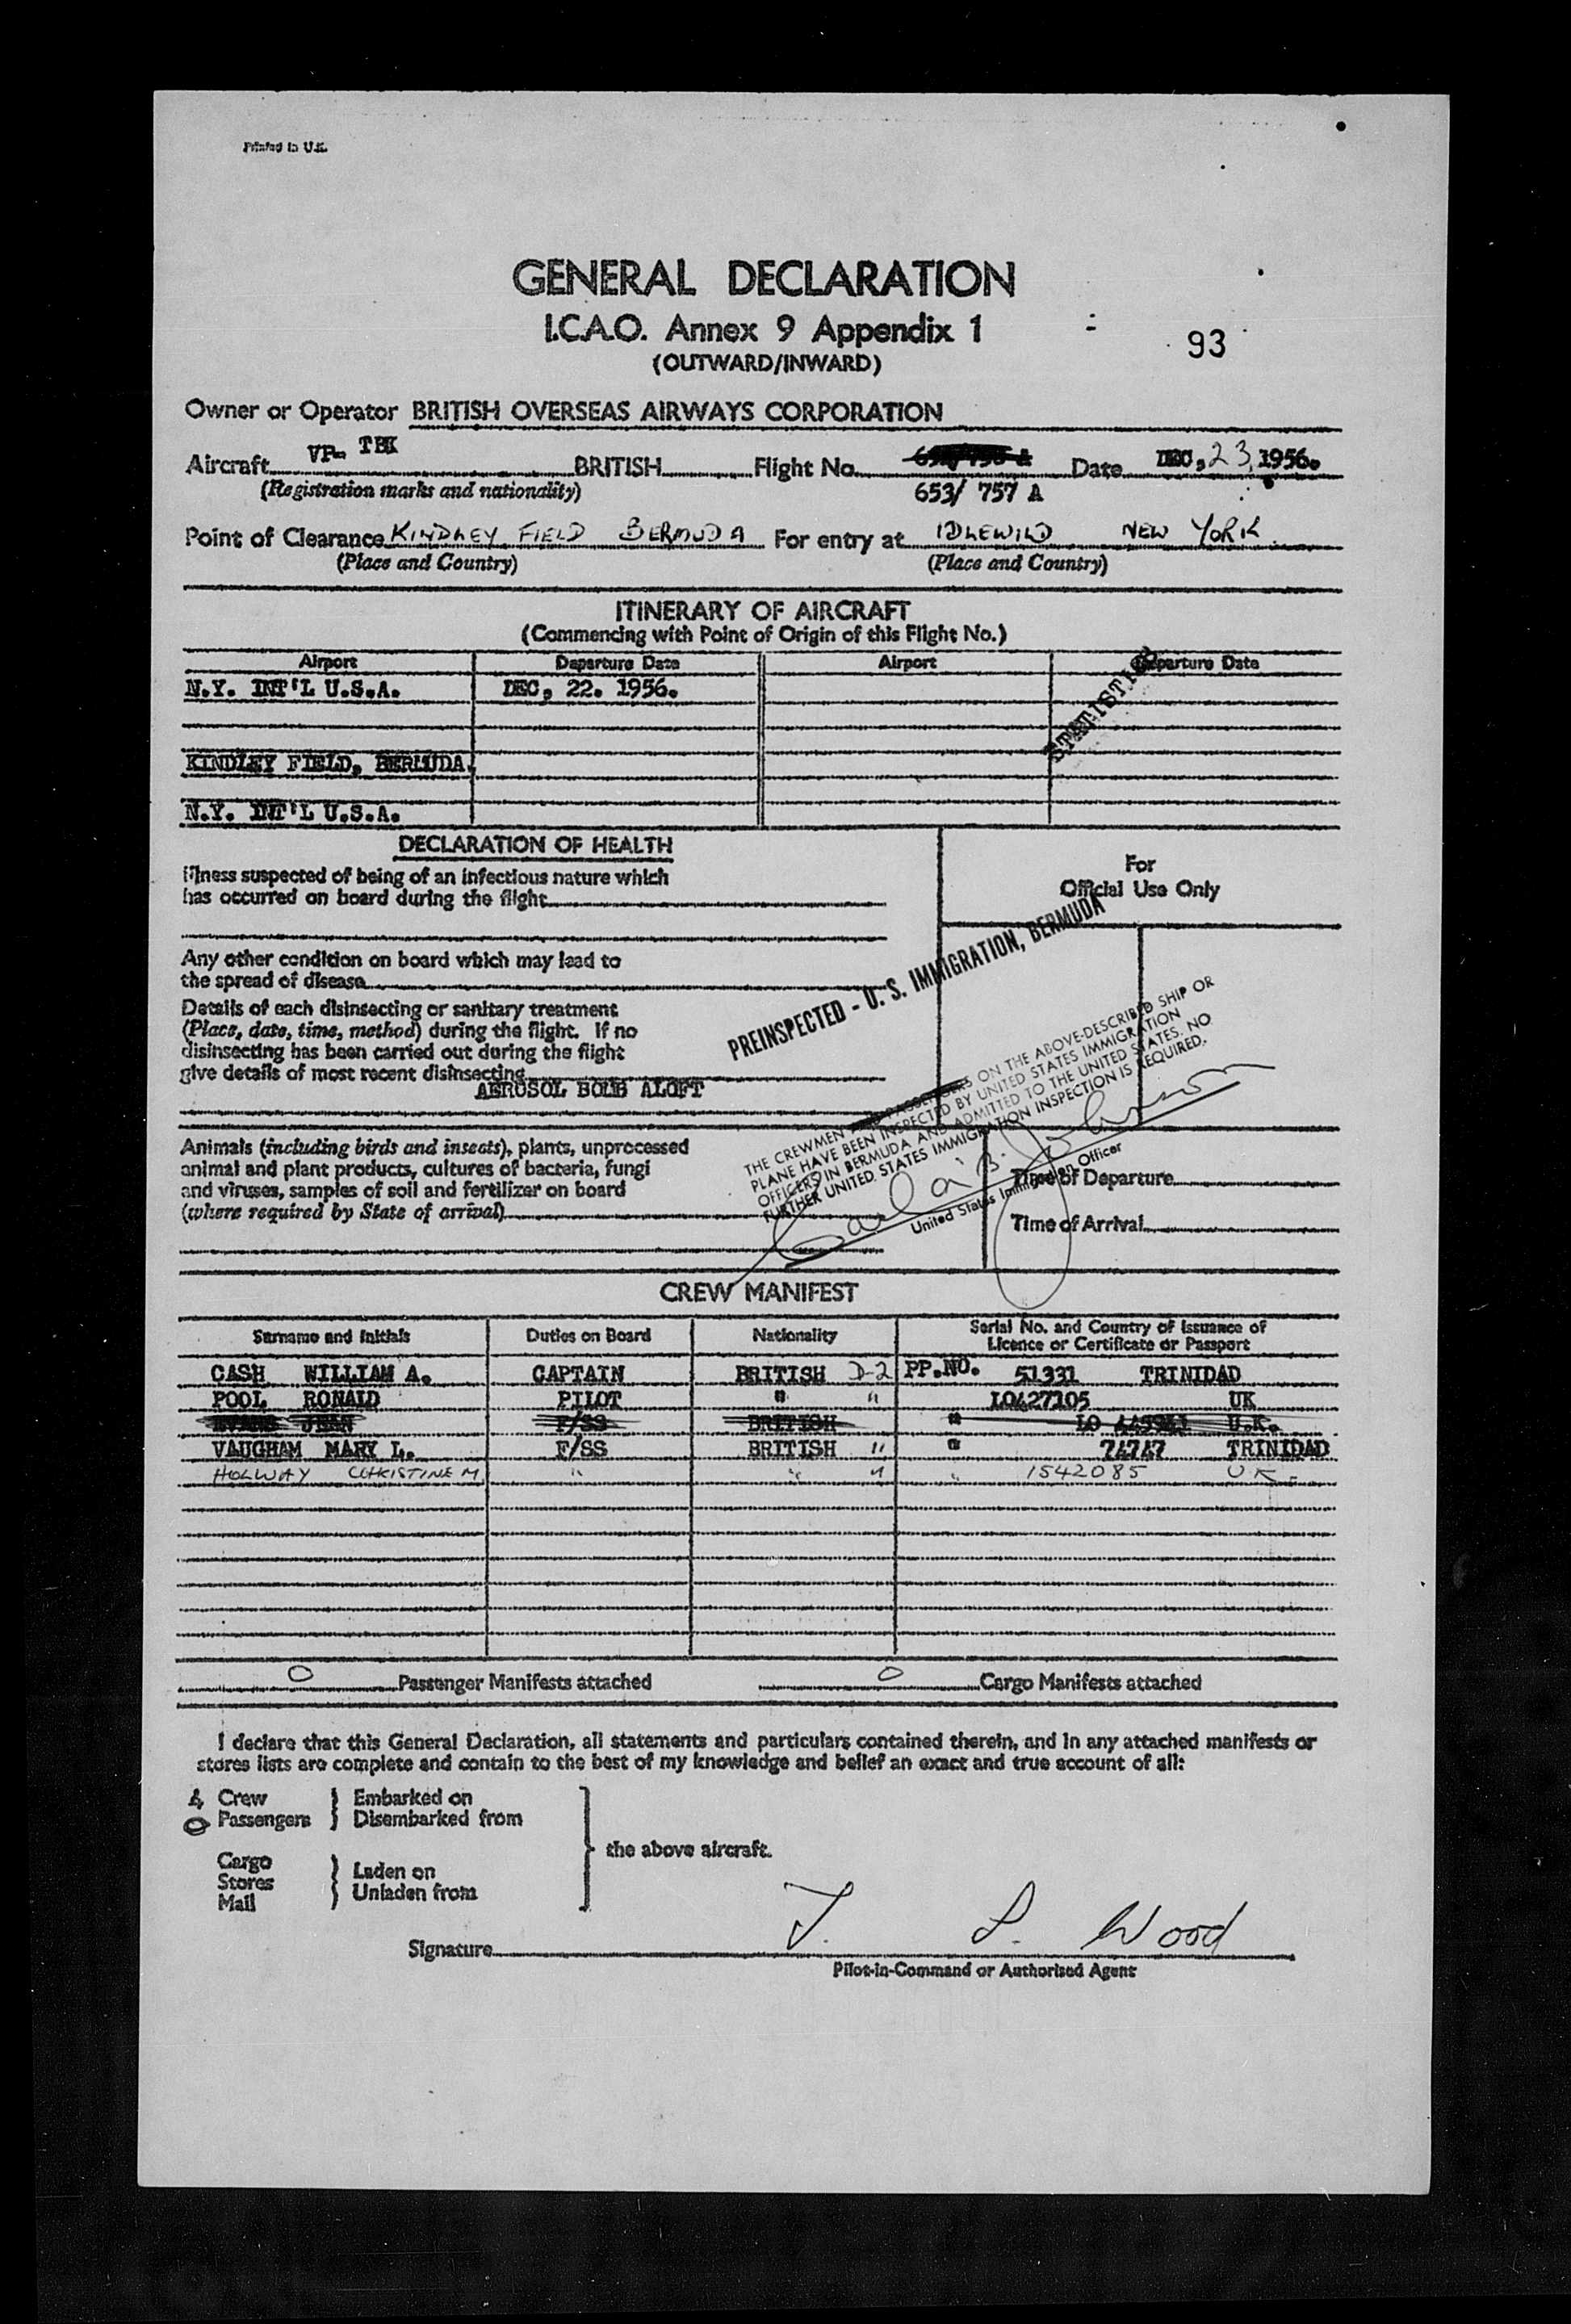 Printed in U.K.
GENERAL DECLARATION
I.C.A.O. Annex 9 Appendix 1
(OUTWARD/INWARD)
93
Owner or Operator BRITISH OVERSEAS AIRWAYS CORPORATION
Aircraft VP- TBK BRITISH Flight No. Date DEC, 23, 1956.
(Registration marks and nationality) 653/ 757 A
Point of Clearance KINDLEY FIELD BERMUDA For entry at IDLEWILD NEW YORK
(Place and Country) (Place and Country)
ITINERARY OF AIRCRAFT
(Commencing with Point of Origin of this Flight No.)
Airport Departure Date Airport Departure Date
N.Y. INT'L U.S.A. DEC, 22. 1956.
STATISTICS
KINDLEY FIELD, BERMUDA.
N.Y. INT'L U.S.A.
DECLARATION OF HEALTH
Illness suspected of being of an infectious nature which
has occurred on board during the flight
For
Official Use Only
Any other condition on board which may lead to
the spread of disease
Details of each disinsecting or sanitary treatment
(Place, date, time, method) during the flight. If no
disinsecting has been carried out during the flight
give details of most recent disinsecting
AEROSOL BOMB ALOFT
PREINSPECTED - U. S. IMMIGRATION, BERMUDA
THE CREWMEN AND PASSENGERS ON THE ABOVE-DESCRIBED SHIP OR
PLANE HAVE BEEN INSPECTED BY UNITED STATES IMMIGRATION
OFFICERS IN BERMUDA AND ADMITTED TO THE UNITED STATES. NO
FURTHER UNITED STATES IMMIGRATION INSPECTION IS REQUIRED.
United States Immigration Officer
Animals (including birds and insects), plants, unprocessed
animal and plant products, cultures of bacteria, fungi
and viruses, samples of soil and fertilizer on board
(where required by State of arrival)
Time of Departure
Time of Arrival
CREW MANIFEST
Surname and Initials Duties on Board Nationality Serial No. and Country of Issuance of
Licence or Certificate or Passport
CASH WILLIAM A. CAPTAIN BRITISH D-2 PP.NO. 51331 TRINIDAD
POOL RONALD PILOT " " LO427105 UK
EVANS JEAN F/SS BRITISH " LO U.K.
VAUGHAM MARY L. F/SS BRITISH " " 74747 TRINIDAD
HOLWAY CHRISTINE M " " " " 1542085 UK.
0 Passenger Manifests attached 0 Cargo Manifests attached
I declare that this General Declaration, all statements and particulars contained therein, and in any attached manifests or
stores lists are complete and contain to the best of my knowledge and belief an exact and true account of all:
4 Crew Embarked on
0 Passengers Disembarked from
the above aircraft.
Cargo
Stores
Mail
Laden on
Unladen from
Signature J. S. Wood
Pilot-in-Command or Authorised Agent